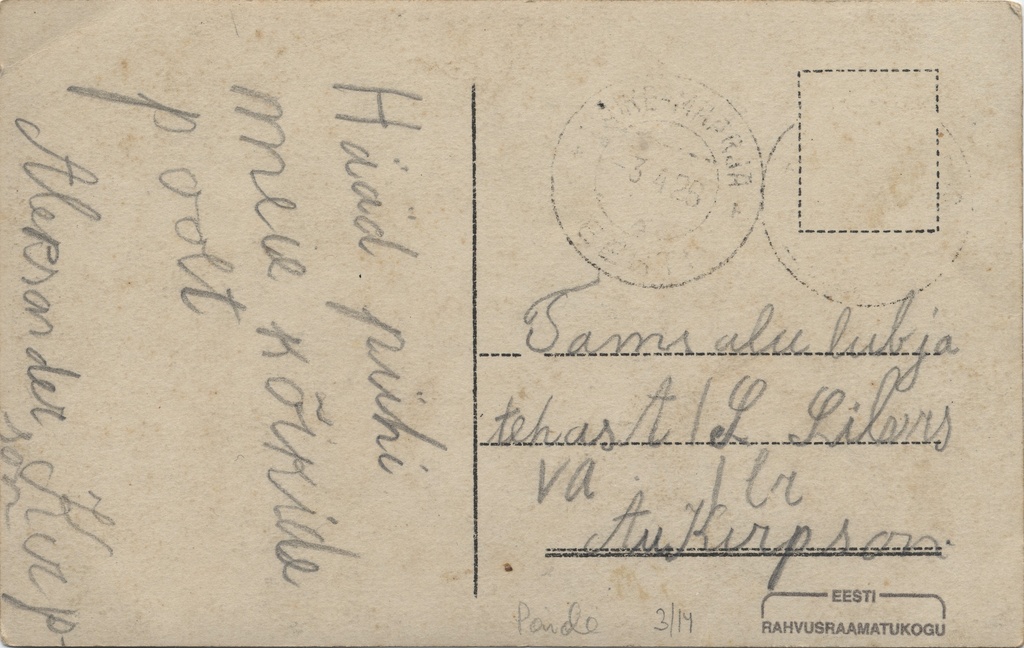 Hääd pühi
meie kõikide
poolt
Aleksander Kirp-
son
-3.4.29
EESTI
Tamsalu lubja
tehas A/S
va
Au Kirpson
Paide 3/14
EESTI
RAHVUSRAAMATUKOGU